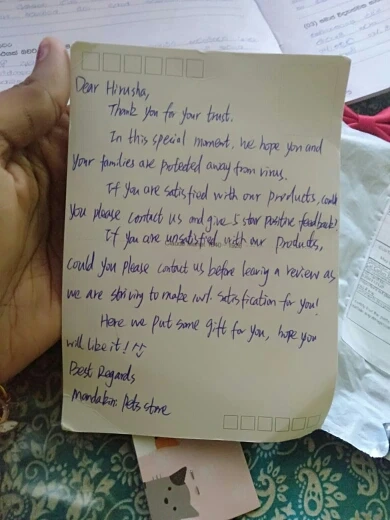 Dear Hirusha,
Thank you for your trust.
In this special moment, we hope you and
your families are protected away from virus.
If you are satisfied with our products, could
you please contact us and give 5 star positive feedback?
If you are unsatisfied with our products,
could you please contact us before leaving a review as
we are striving to make satisfication for you!
Here we put some gift for you, hope you
will like it!
Best Regards
Pets store